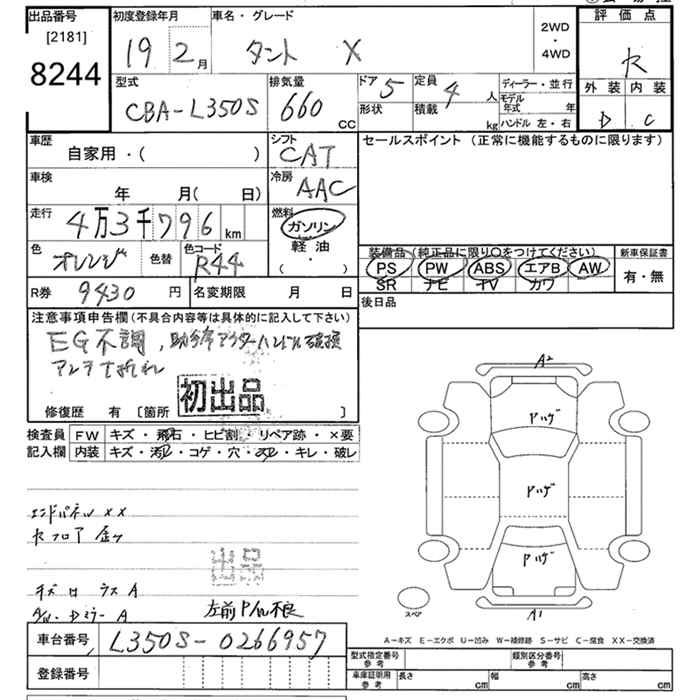 出品番号
[2181]
8244
初度登録年月
19 2月
車名・グレード
タント X
2WD
・
4WD
評価点
R
外装 内装
D C
型式
CBA-L350S
排気量
660 CC
ドア 5
定員 4 人
形状
積載 kg
ディーラー・並行
モデル年式 年
ハンドル 左・右
車歴
自家用・( )
シフト
CAT
セールスポイント (正常に機能するものに限ります)
車検
年 月( 日)
冷房
AAC
走行
4万3千796 km
燃料
ガソリン
軽油
( ・ )
色
オレンジ
色替
色コード
R44
装備品 (純正品に限り○をつけてください)
PS PW ABS エアB AW
SR ナビ TV カワ
新車保証書
有・無
R券 9430 円
名変期限 月 日
後日品
注意事項申告欄 (不具合内容等は具体的に記入して下さい)
EG不調, 助手席アウターハンドル破損
アンテナ折れ
初出品
修復歴 有 [箇所 ]
検査員
記入欄
FW キズ・飛石・ヒビ割・リペア跡・×要
内装 キズ・汚れ・コゲ・穴・スレ・キレ・破レ
エンドパネル XX
R フロア
A2
Pハゲ
Pハゲ
Pハゲ
A1
スペア
左前P/W不良
A-キズ E-エクボ U-凹み W-補修跡 S-サビ C-腐食 XX-交換済
車台番号 L350S-0266957
登録番号
型式指定番号
参考
類別区分番号
参考
車庫証明用
参考
長さ cm
幅 cm
高さ cm